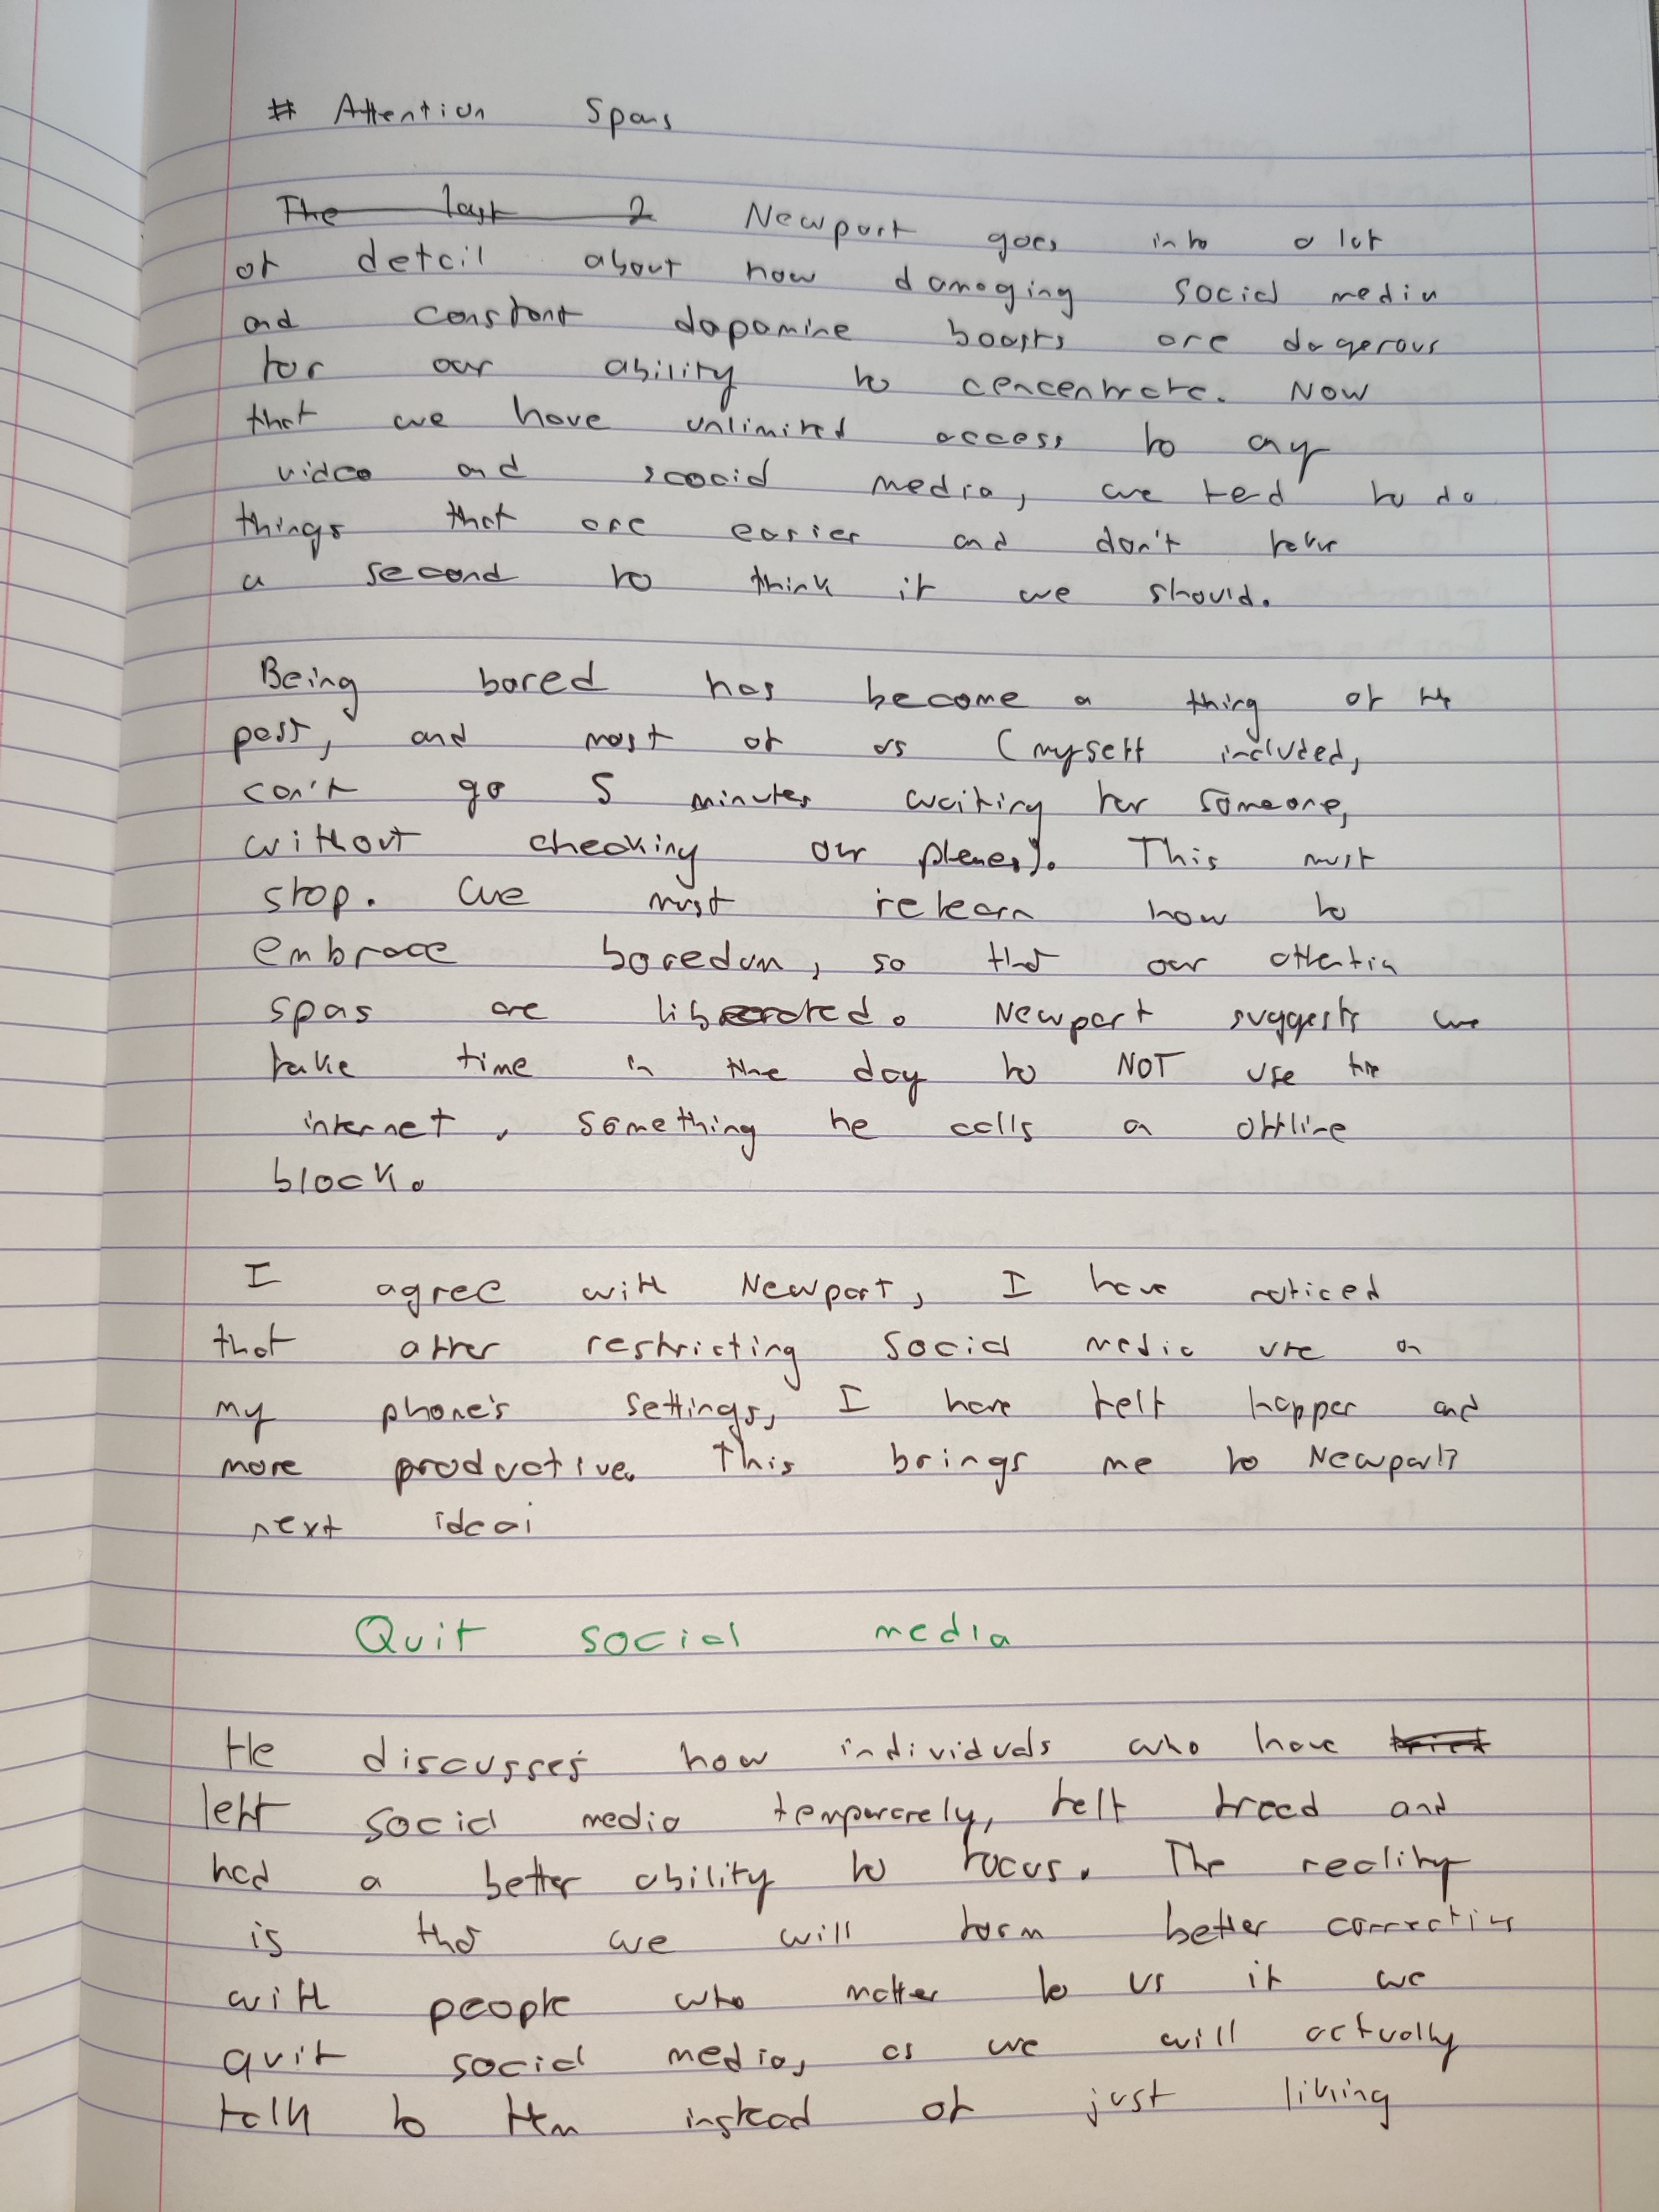 # Attention Spans
The last 2 Newport goes into a lot
of detail about how damaging social media
and constant dopamine boosts are dangerous
for our ability to concentrate. Now
that we have unlimited access to any
video and social media, we tend to do
things that are easier and don't take
a second to think if we should.
Being bored has become a thing of the
past, and most of us (myself included,
can't go 5 minutes waiting for someone,
without checking our phones). This must
stop. We must relearn how to
embrace boredom, so that our attention
spans are liberated. Newport suggests we
take time in the day to NOT use the
internet, something he calls an offline
block.
I agree with Newport, I have noticed
that after restricting social media use on
my phone's settings, I have felt happer and
more productive. This brings me to Newport's
next idea:
Quit social media
He discusses how individuals who have
left social media temporarely, felt freed and
had a better ability to focus. The reality
is that we will form better connections
with people who matter to us if we
quit social media, as we will actually
talk to them instead of just liking